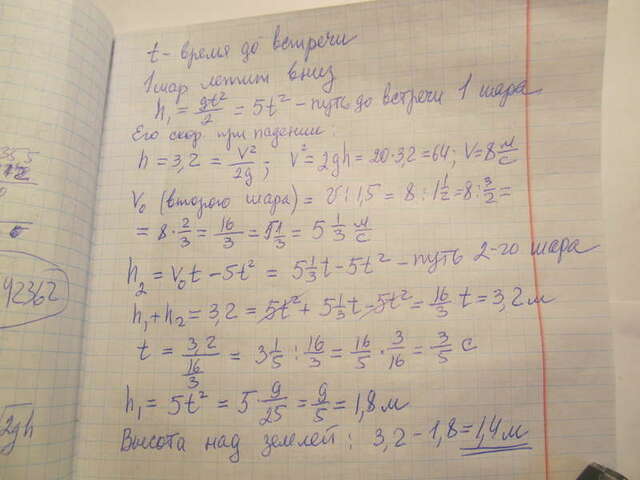 t - время до встречи
1 шар летит вниз
h₁ = gt²/2 = 5t² - путь до встречи 1 шара
Его скор. при падении:
h = 3,2 = V²/2g ; V² = 2gh = 20·3,2 = 64; V = 8 м/с
V₀ (второго шара) = v : 1,5 = 8 : 1 1/2 = 8 : 3/2 =
= 8 · 2/3 = 16/3 = 5 1/3 = 5 1/3 м/с
h₂ = V₀t - 5t² = 5 1/3 t - 5t² - путь 2-го шара
h₁ + h₂ = 3,2 = 5t² + 5 1/3 t - 5t² = 16/3 t = 3,2 м
t = 3,2 / 16/3 = 3 1/5 : 16/3 = 16/5 · 3/16 = 3/5 с
h₁ = 5t² = 5 · 9/25 = 9/5 = 1,8 м
Высота над землей: 3,2 - 1,8 = 1,4 м
92362
2gh